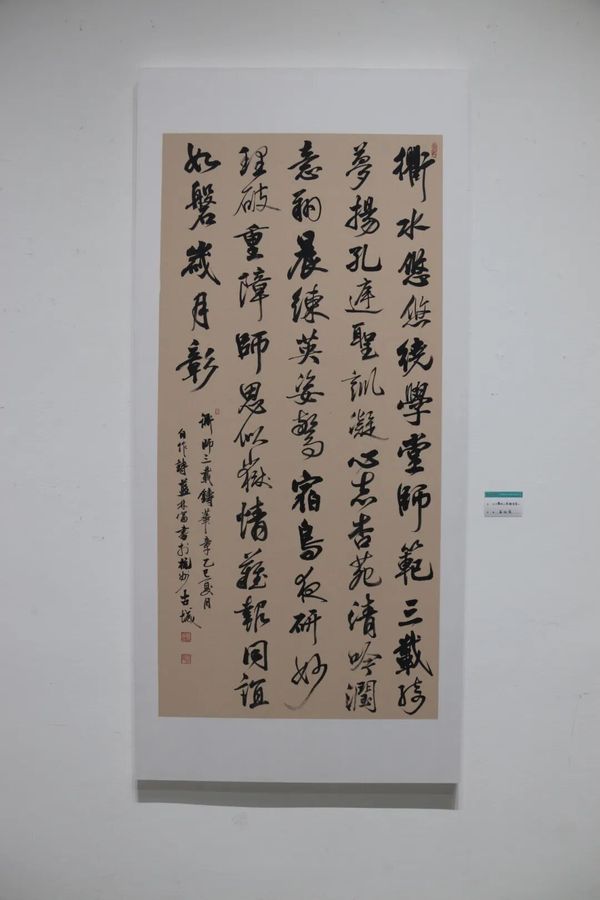 衢水悠悠繞學堂師範三載綺
夢揚孔庭聖訓凝心志杏苑清吟潤
意翔晨練英姿驚宿鳥夜研妙
理破重障師恩似嶽情難報同誼
如磐歲月彰
衢師三載鑄華章乙巳夏月
自作詩藍林富書於州古城